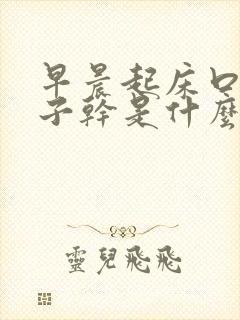 早晨起床口
子幹是什麼
靈兒飛飛